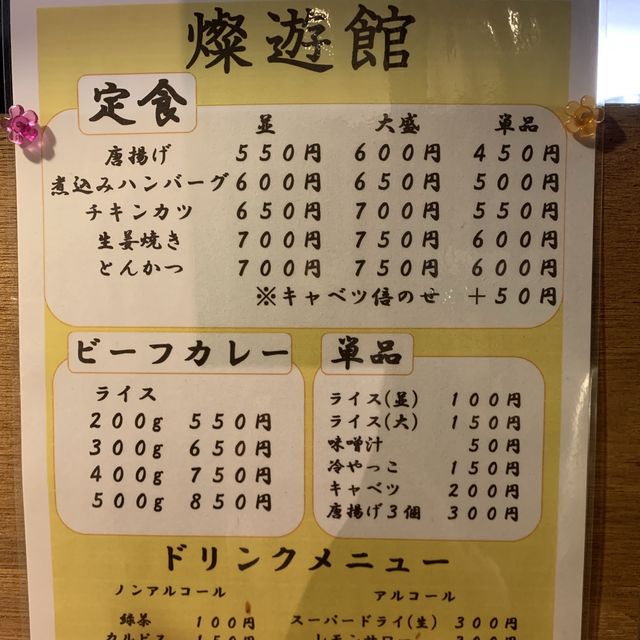 燦遊館
定食
並 大盛 単品
唐揚げ 550円 600円 450円
煮込みハンバーグ 600円 650円 500円
チキンカツ 650円 700円 550円
生姜焼き 700円 750円 600円
とんかつ 700円 750円 600円
※キャベツ倍のせ +50円
ビーフカレー
ライス
200g 550円
300g 650円
400g 750円
500g 850円
単品
ライス(並) 100円
ライス(大) 150円
味噌汁 50円
冷やっこ 150円
キャベツ 200円
唐揚げ3個 300円
ドリンクメニュー
ノンアルコール
緑茶 100円
カルピス 150円
アルコール
スーパードライ(生) 300円
レモンサワー